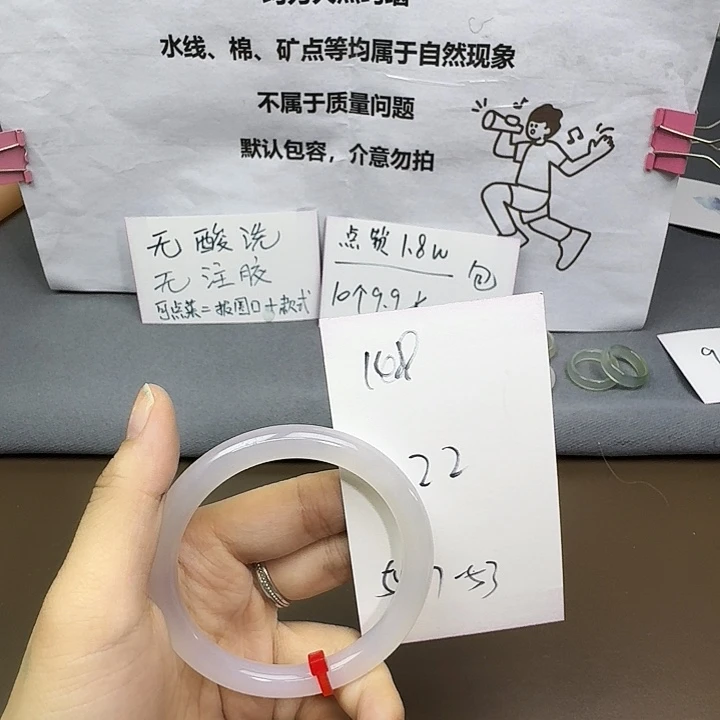 水线、棉、矿点等均属于自然现象
不属于质量问题
默认包容，介意勿拍
无酸洗
无注胶
可点菜=报圈口+款式
点锁1.8w
10个9.9
包
168
22
53
9